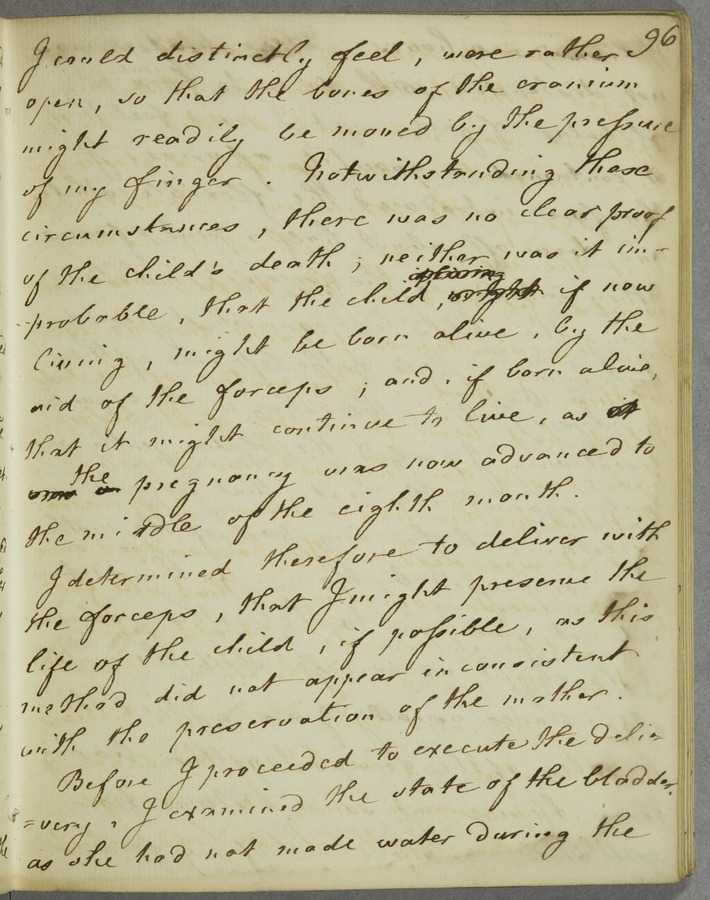 96
I could distinctly feel, were rather
open, so that the bones of the cranium
might readily be moved by the pressure
of my finger. Notwithstanding these
circumstances, there was no clear proof
of the child's death; neither was it im-
probable, that the child, if now
living, might be born alive, by the
aid of the forceps; and, if born alive,
that it might continue to live, as
the pregnancy was now advanced to
the middle of the eighth month.
I determined therefore to deliver with
the forceps, that I might preserve the
life of the child, if possible, as this
method did not appear inconsistent
with the preservation of the mother.
Before I proceeded to execute the deli=
=very, I examined the state of the bladder,
as she had not made water during the